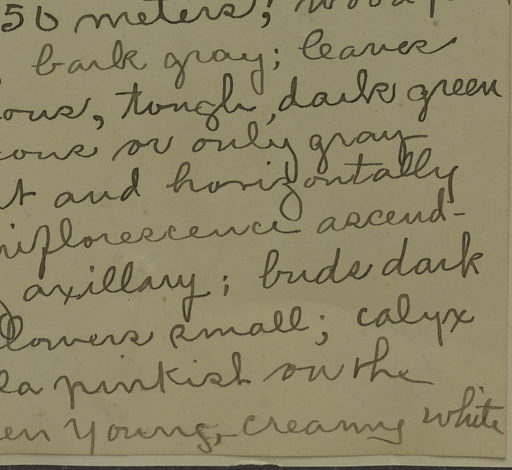 50 meters; wood
bark gray; leaves
ous, tough, dark green
cous or only gray
t and horizontally
niflorescence ascend-
axillary; buds dark
lowers small; calyx
la pinkish on the
en young, creamy white